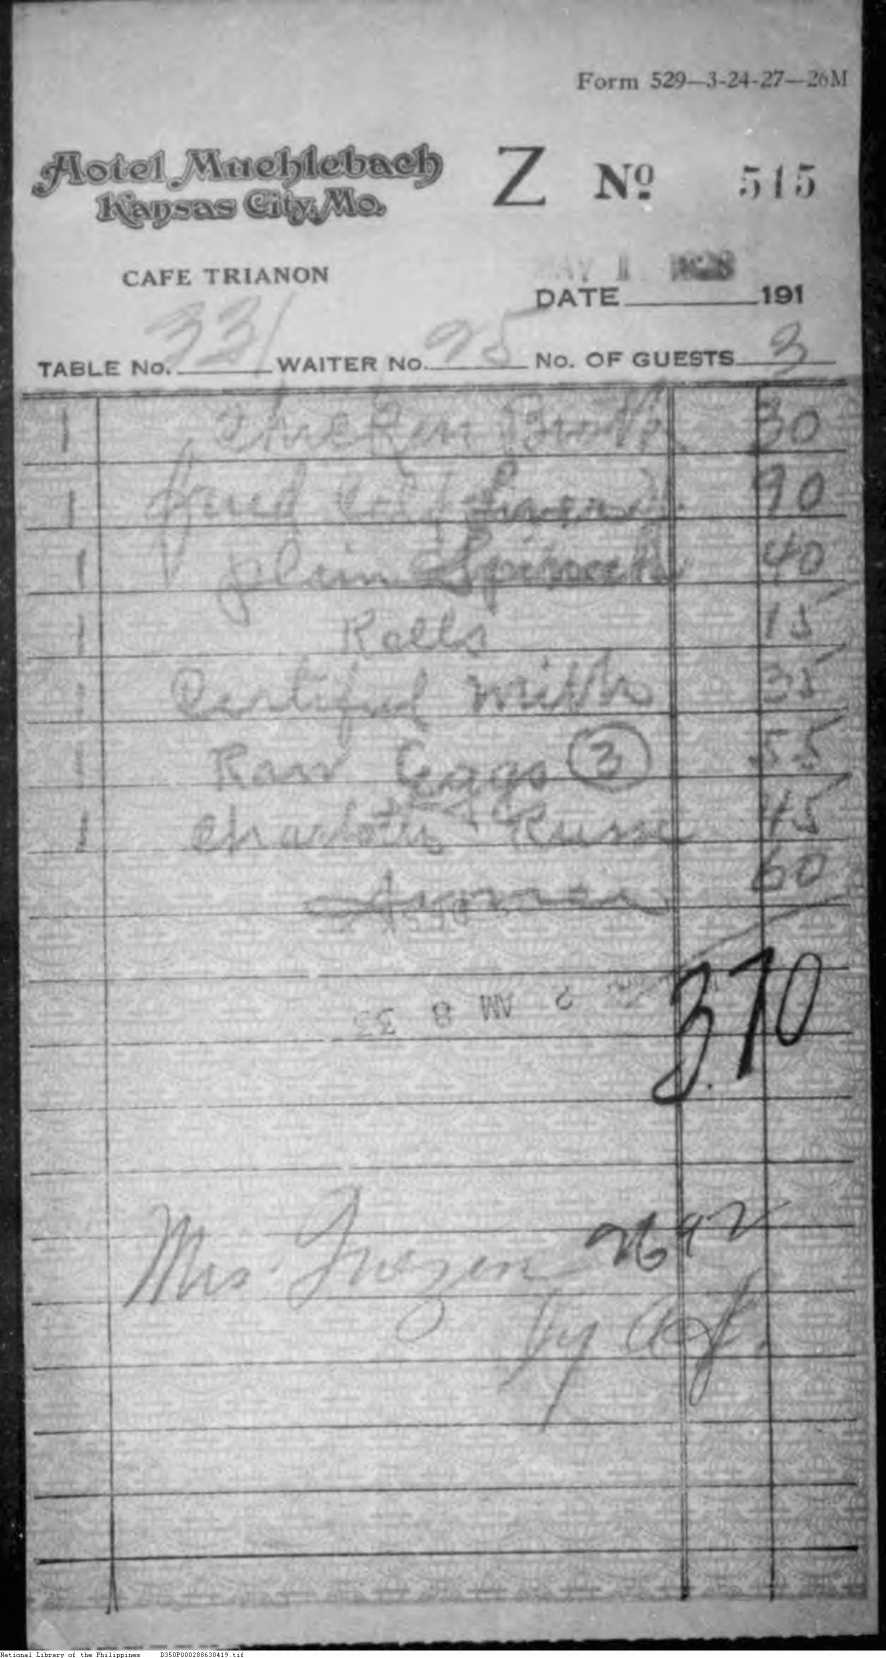 Form 529—3-24-27—26M
Hotel Muehlebach
Kansas City, Mo.
Z No 515
CAFE TRIANON
MAY 1 1928
DATE 191
TABLE No. 331 WAITER No. 95 No. OF GUESTS 3
1 Chicken Broth 30
1 Fried Calf Liver 90
1 plain Spinach 40
1 Rolls 15
1 Certified milk 35
1 Raw Eggs 3 55
1 Charlotte Russe 45
60
2 AM 8 33
3.70
Mrs.
by
National Library of the Philippines D350P000288630419.tif